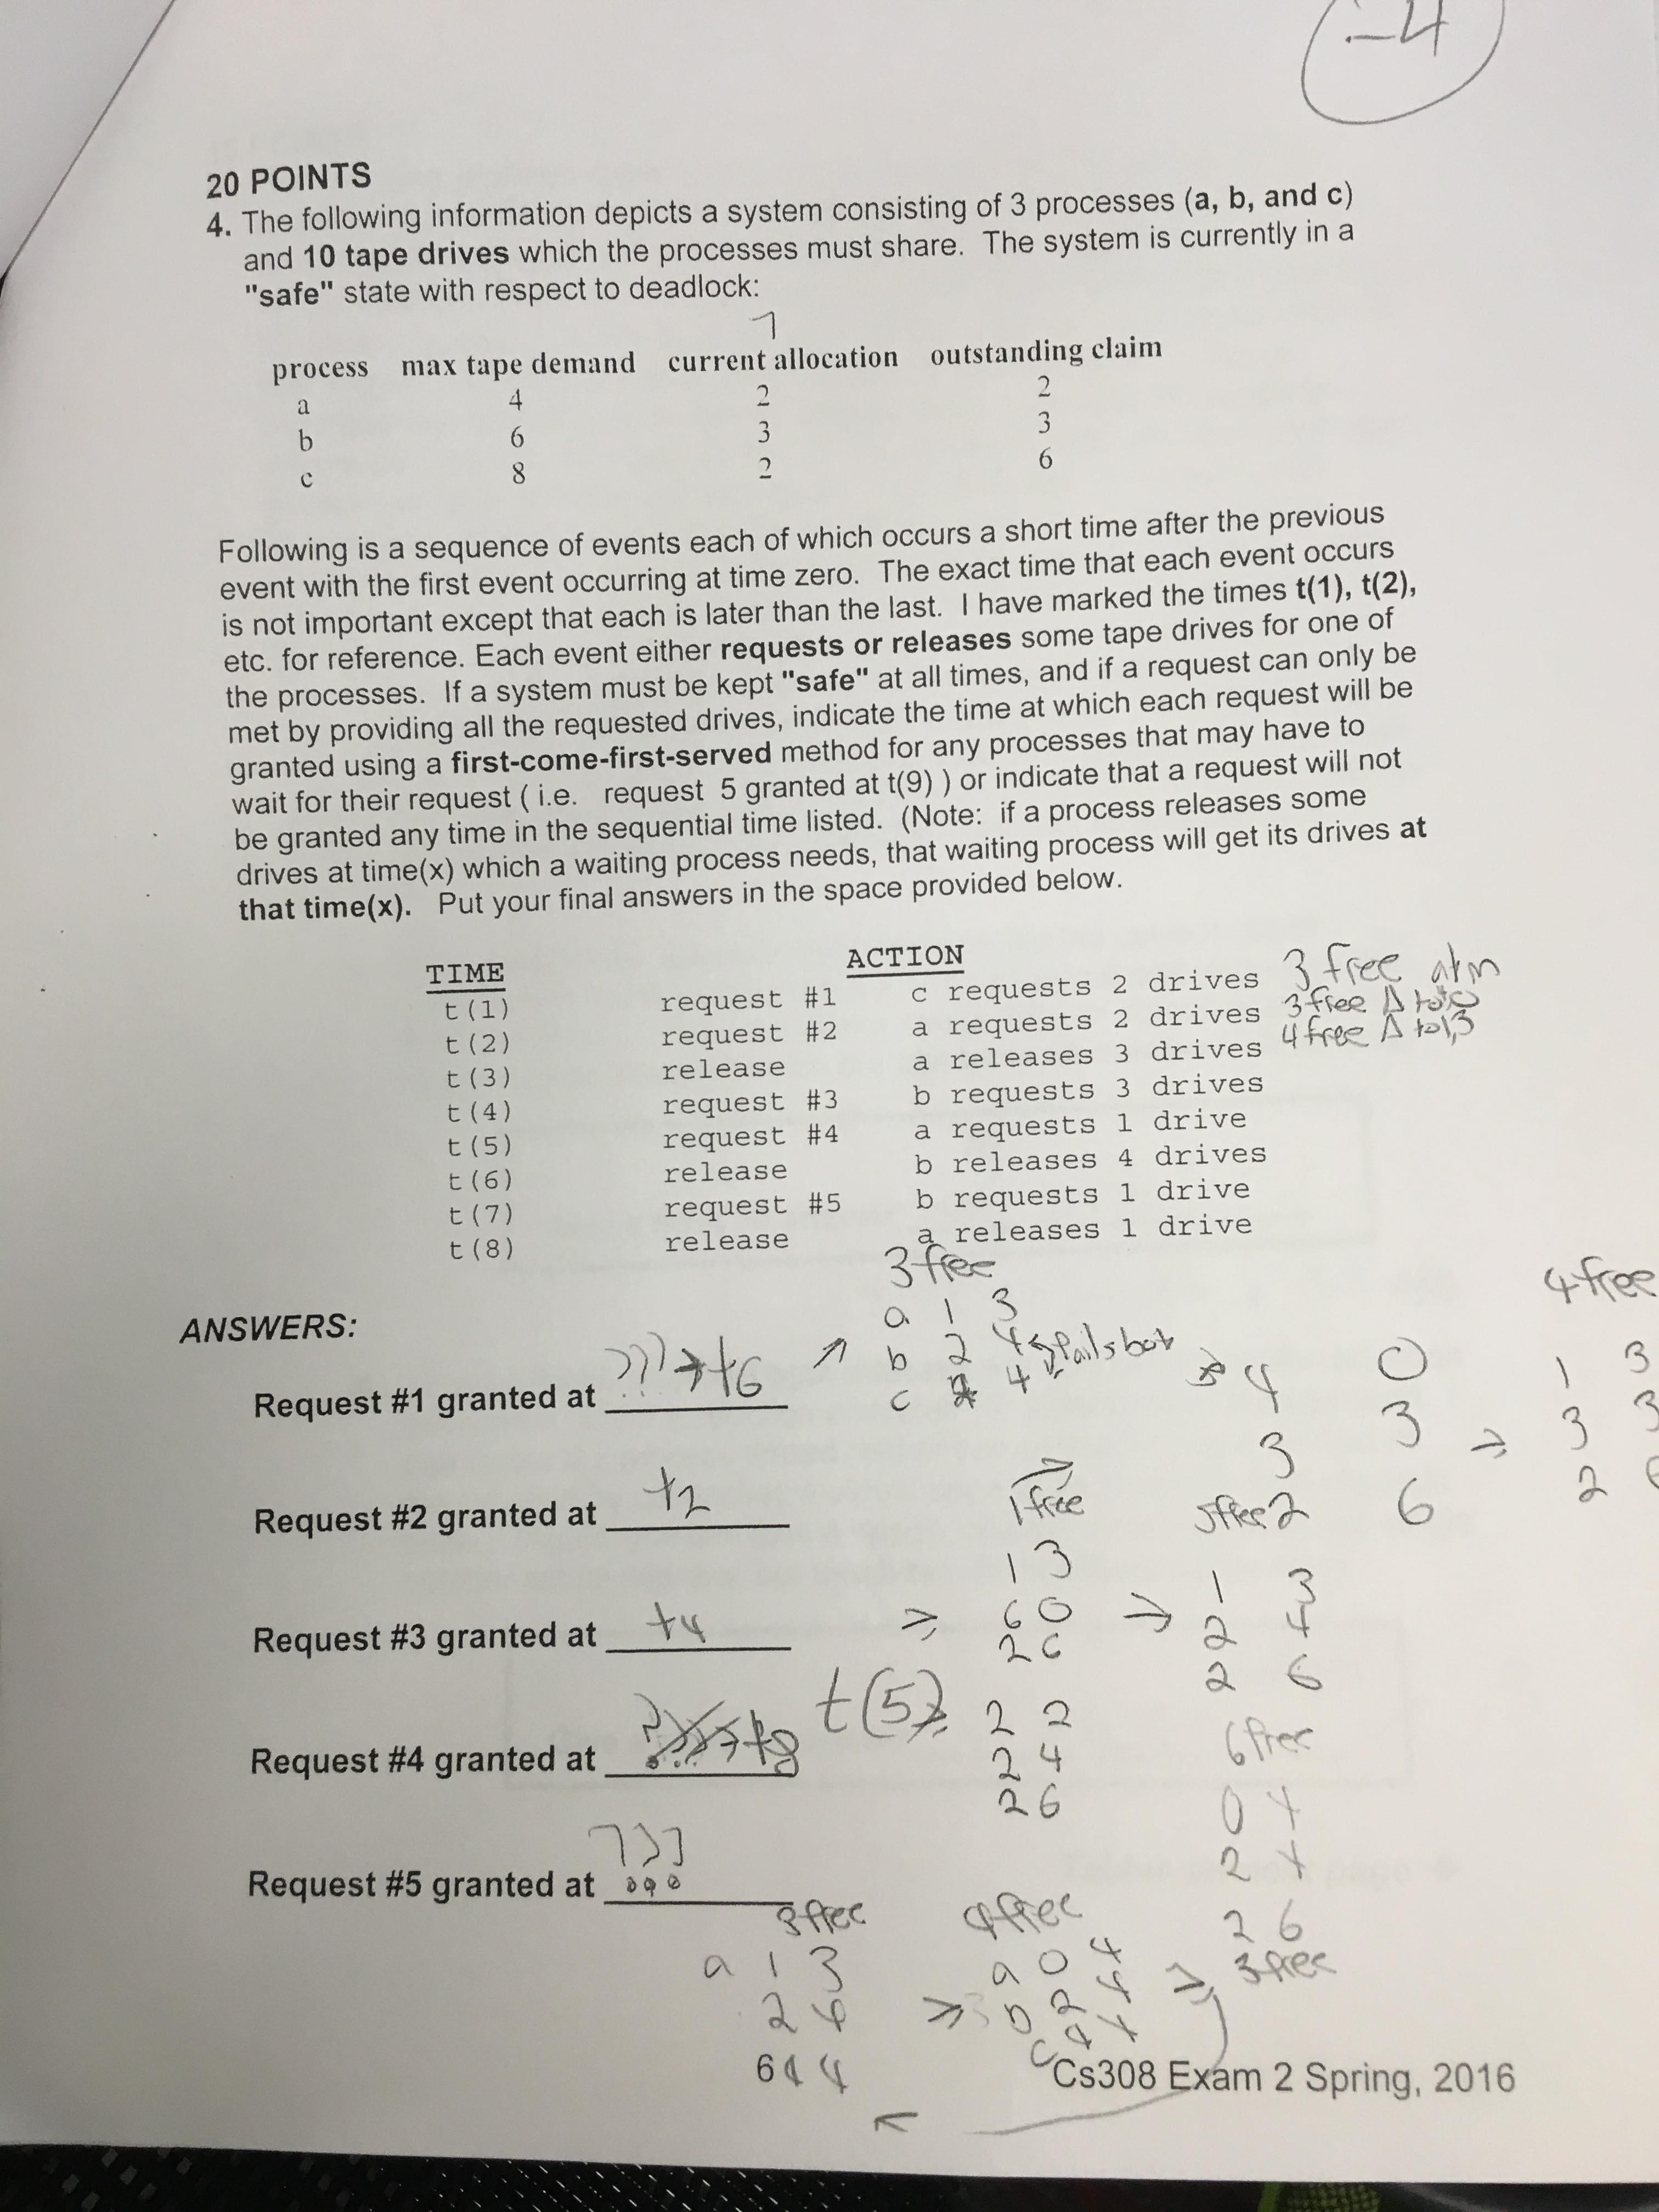 -4
20 POINTS
4. The following information depicts a system consisting of 3 processes (a, b, and c)
and 10 tape drives which the processes must share. The system is currently in a
"safe" state with respect to deadlock:
7
process max tape demand current allocation outstanding claim
a 4 2 2
b 6 3 3
c 8 2 6
Following is a sequence of events each of which occurs a short time after the previous
event with the first event occurring at time zero. The exact time that each event occurs
is not important except that each is later than the last. I have marked the times t(1), t(2),
etc. for reference. Each event either requests or releases some tape drives for one of
the processes. If a system must be kept "safe" at all times, and if a request can only be
met by providing all the requested drives, indicate the time at which each request will be
granted using a first-come-first-served method for any processes that may have to
wait for their request ( i.e. request 5 granted at t(9) ) or indicate that a request will not
be granted any time in the sequential time listed. (Note: if a process releases some
drives at time(x) which a waiting process needs, that waiting process will get its drives at
that time(x). Put your final answers in the space provided below.
TIME ACTION
t(1) request #1 c requests 2 drives 3 free atm
t(2) request #2 a requests 2 drives 3 free Δ to
t(3) release a releases 3 drives 4 free Δ to 1,3
t(4) request #3 b requests 3 drives
t(5) request #4 a requests 1 drive
t(6) release b releases 4 drives
t(7) request #5 b requests 1 drive
t(8) release a releases 1 drive
3 free
4 free
ANSWERS:
a 1 3
b 2 4 fails bot
c 4
Request #1 granted at ??? → t6
4 0 1 3
3 3 ⇒ 3 3
2 6 2
Request #2 granted at t2
1 free 5 free
1 3 1 3
Request #3 granted at t4 ⇒ 6 0 ⇒ 2 4
2 6 2 6
t(5) 2 2
Request #4 granted at t8 2 4 6 free
2 6 0 4
Request #5 granted at ??? 2 4
3 free 4 free 2 6
a 1 3 a 0 4 ⇒ 3 free
2 4 ⇒ b 2 4
6 4 4 c 4 4
Cs308 Exam 2 Spring, 2016